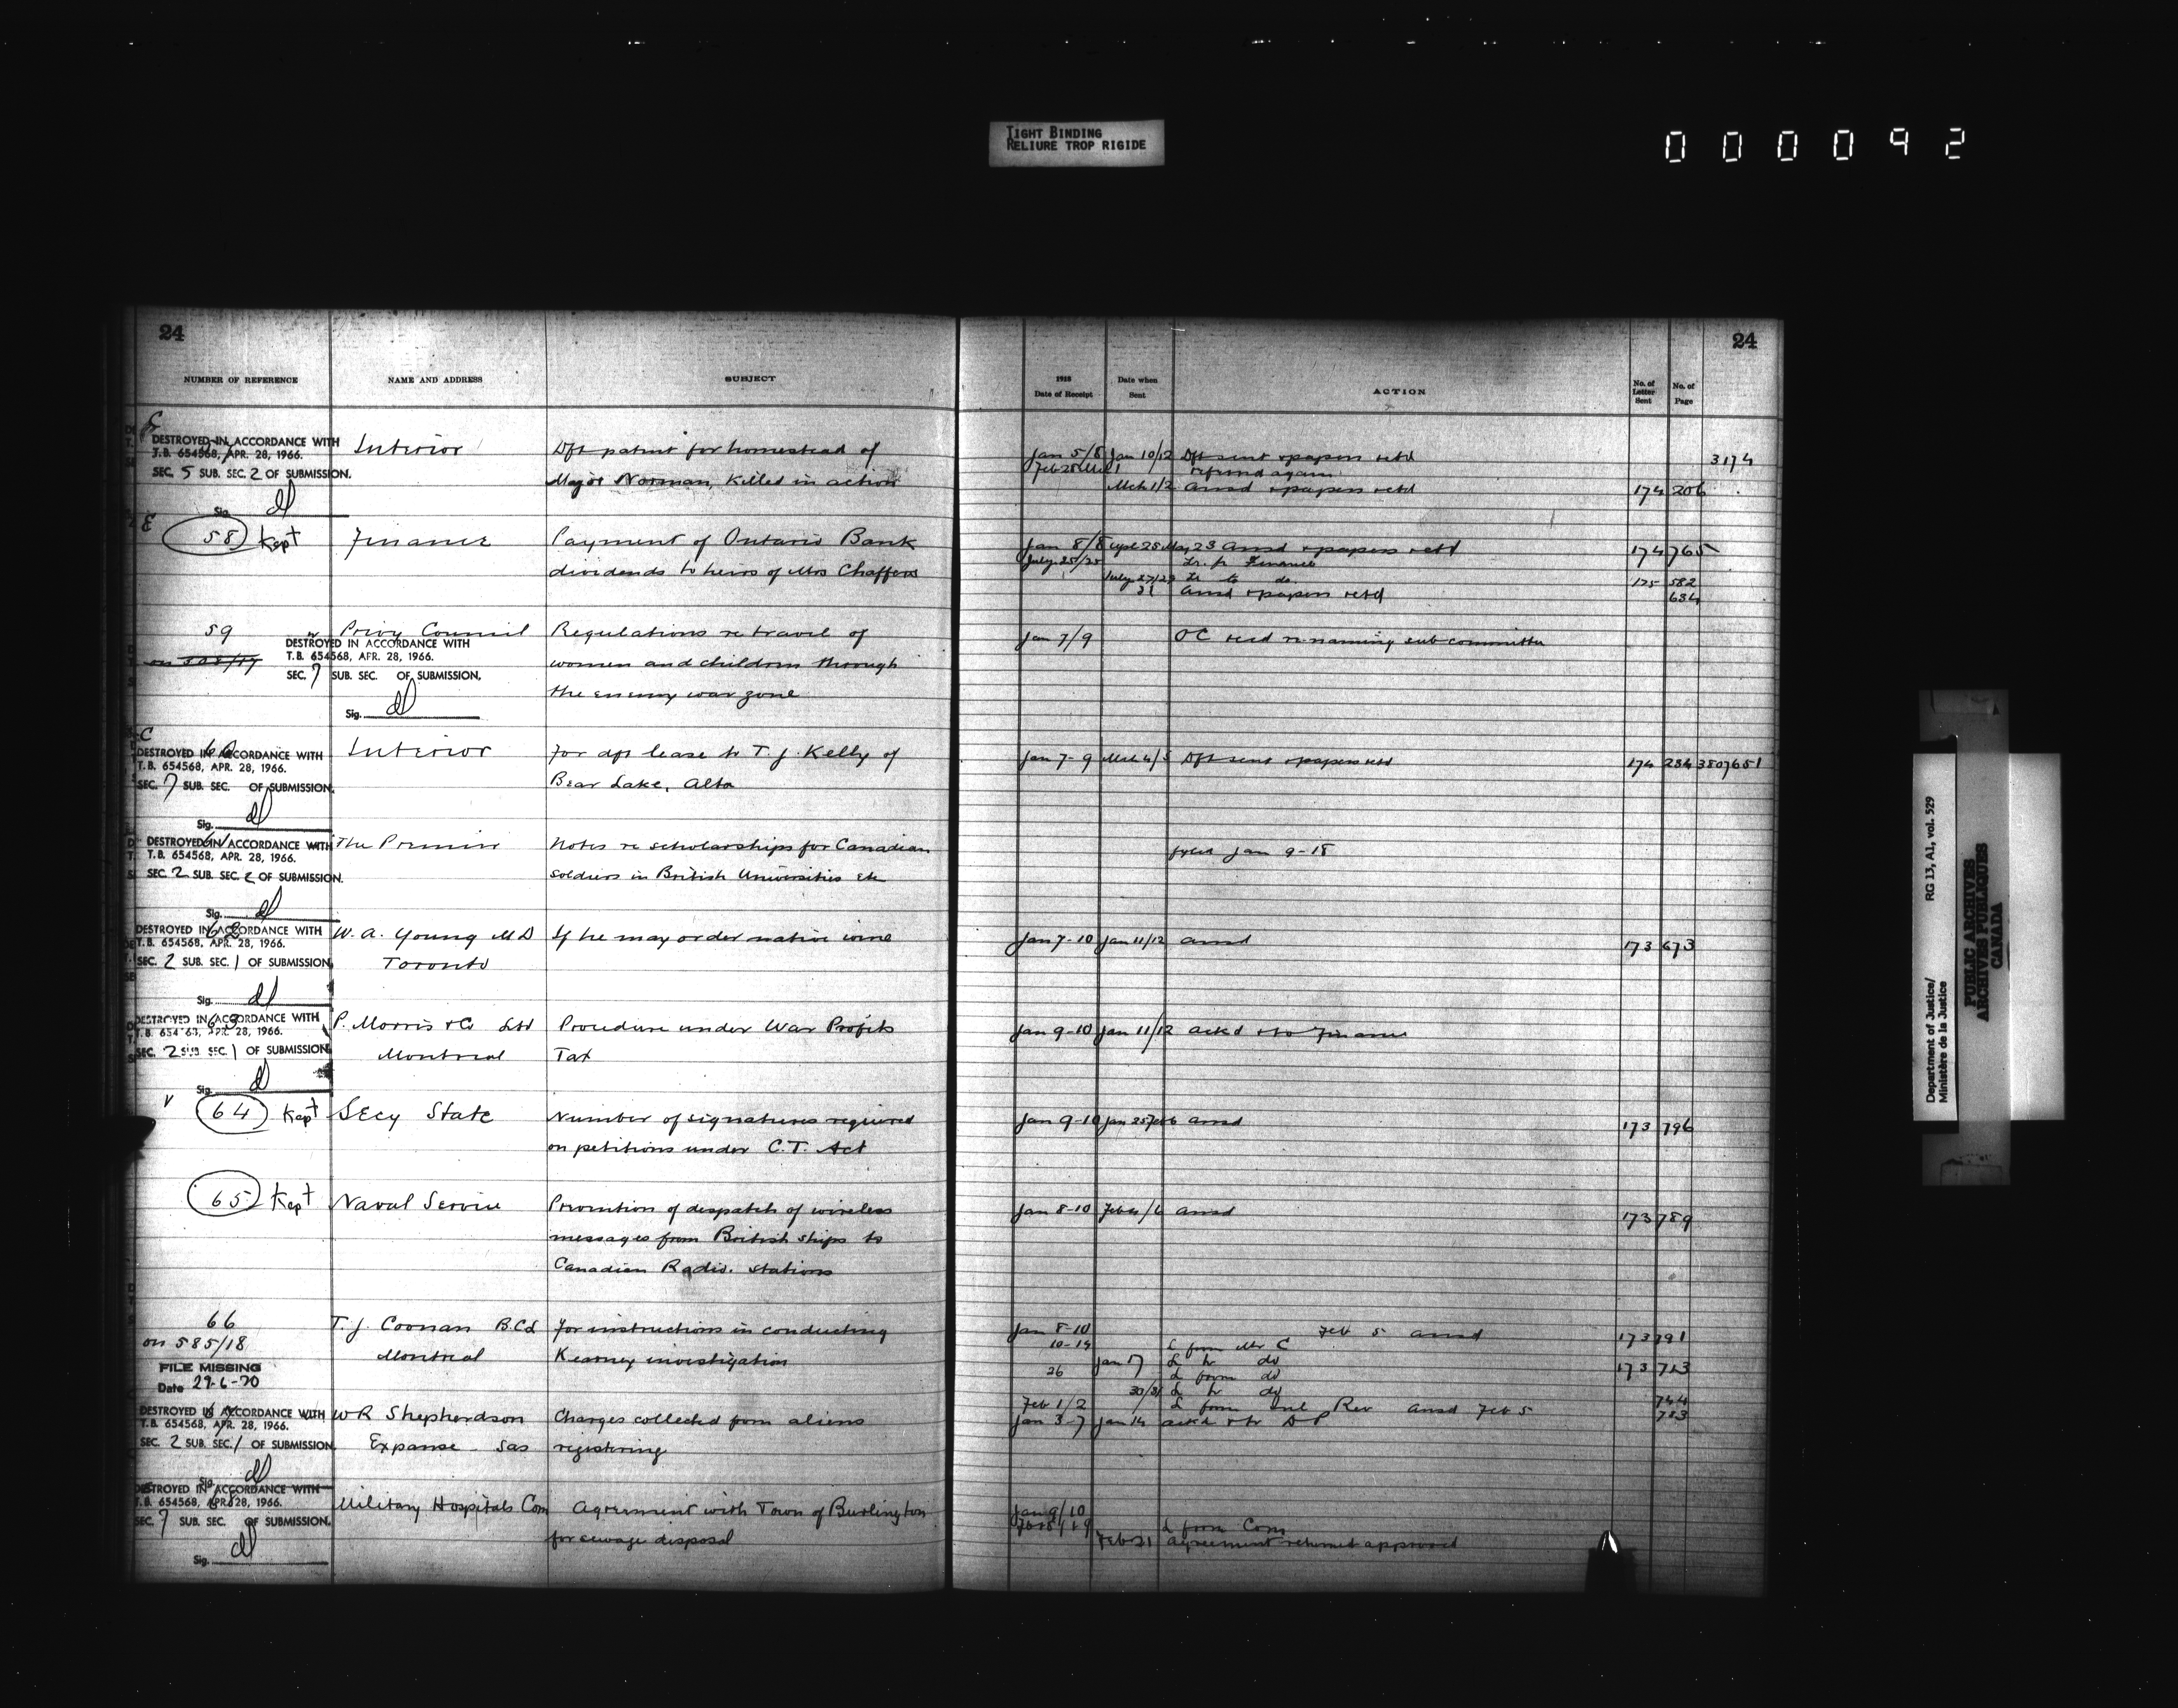 TIGHT BINDING
RELIURE TROP RIGIDE
000092
24
24
NUMBER OF REFERENCE
NAME AND ADDRESS
SUBJECT
1918
Date of Receipt
Date when
Sent
ACTION
No. of
Letter
Sent
No. of
Page
DESTROYED IN ACCORDANCE WITH
T.B. 654568, APR. 28, 1966.
SEC. 5 SUB. SEC. 2 OF SUBMISSION.
Sig.
Interior
Dft patent for homestead of
Major Norman, Killed in action
Jan 5/8 Jan 10/12 Dft sent & papers retd
3174
Feb 28 Mch 1 returned again
Mch 1/2 ansd & papers retd 174 206
E
58 Kept
Finance
Payment of Ontario Bank
dividends to heirs of Mrs Chaffers
Jan 8/8 May 23 ansd & papers retd 174 765
July 25/25 Lr. fr Finance
July 27/29 Lr to do 175 582
31 ansd & papers retd 634
59
Privy Council
Regulations re travel of
women and children through
the enemy war zone
DESTROYED IN ACCORDANCE WITH
T.B. 654568, APR. 28, 1966.
SEC. 7 SUB. SEC. OF SUBMISSION.
Sig.
Jan 7/9 OC recd re naming sub committee
C
60
DESTROYED IN ACCORDANCE WITH
T.B. 654568, APR. 28, 1966.
SEC. 7 SUB. SEC. OF SUBMISSION.
Sig.
Interior
For dft lease to T. J. Kelly of
Bear Lake, Alta
Jan 7-9 Mch 4/5 Dft sent & papers retd 174 234 3807651
61
DESTROYED IN ACCORDANCE WITH
T.B. 654568, APR. 28, 1966.
SEC. 2 SUB. SEC. 2 OF SUBMISSION.
Sig.
The Premier
Notes re scholarships for Canadian
soldiers in British Universities Etc
fyled Jan 9-18
62
DESTROYED IN ACCORDANCE WITH
T.B. 654568, APR. 28, 1966.
SEC. 2 SUB. SEC. 1 OF SUBMISSION.
Sig.
W. A. Young M D
Toronto
If he may order native wine
Jan 7-10 Jan 11/12 ansd 173 673
63
DESTROYED IN ACCORDANCE WITH
T.B. 654568, APR. 28, 1966.
SEC. 2 SUB. SEC. 1 OF SUBMISSION.
Sig.
P. Morris & Co Ltd
Montreal
Procedure under War Profits
Tax
Jan 9-10 Jan 11/12 ackd & to Finance
64 Kept
Secy State
Number of signatures required
on petitions under C.T. Act
Jan 9-10 Jan 25 Feb 6 ansd 173 796
65 Kept
Naval Service
Prevention of despatch of wireless
messages from British ships to
Canadian Radio. stations
Jan 8-10 Feb 4/6 ansd 173 789
66
on 585/18
FILE MISSING
Date 29-6-70
T. J. Coonan B.C.L
Montreal
For instructions in conducting
Kearney investigation
Jan 8-10 Feb 5 ansd 173 791
10-14 L from Mr C
Jan 17 L to do 173 713
26 L from do
30/31 L to do 744
Feb 1/2 L from Inl Rev ansd Feb 5 783
67
DESTROYED IN ACCORDANCE WITH
T.B. 654568, APR. 28, 1966.
SEC. 2 SUB. SEC. 1 OF SUBMISSION.
Sig.
W R Shepherdson
Expanse - Sas
Charges collected from aliens
registering
Jan 3-7 Jan 14 ackd & to D P
68
DESTROYED IN ACCORDANCE WITH
T.B. 654568, APR. 28, 1966.
SEC. 7 SUB. SEC. OF SUBMISSION.
Sig.
Military Hospitals Com
Agreement with Town of Burlington
for sewage disposal
Jan 9/10
Feb 18/19 L from Com
Feb 21 agreement returned approved
Department of Justice/
Ministère de la Justice
RG 13, A1, vol. 529
PUBLIC ARCHIVES
ARCHIVES PUBLIQUES
CANADA